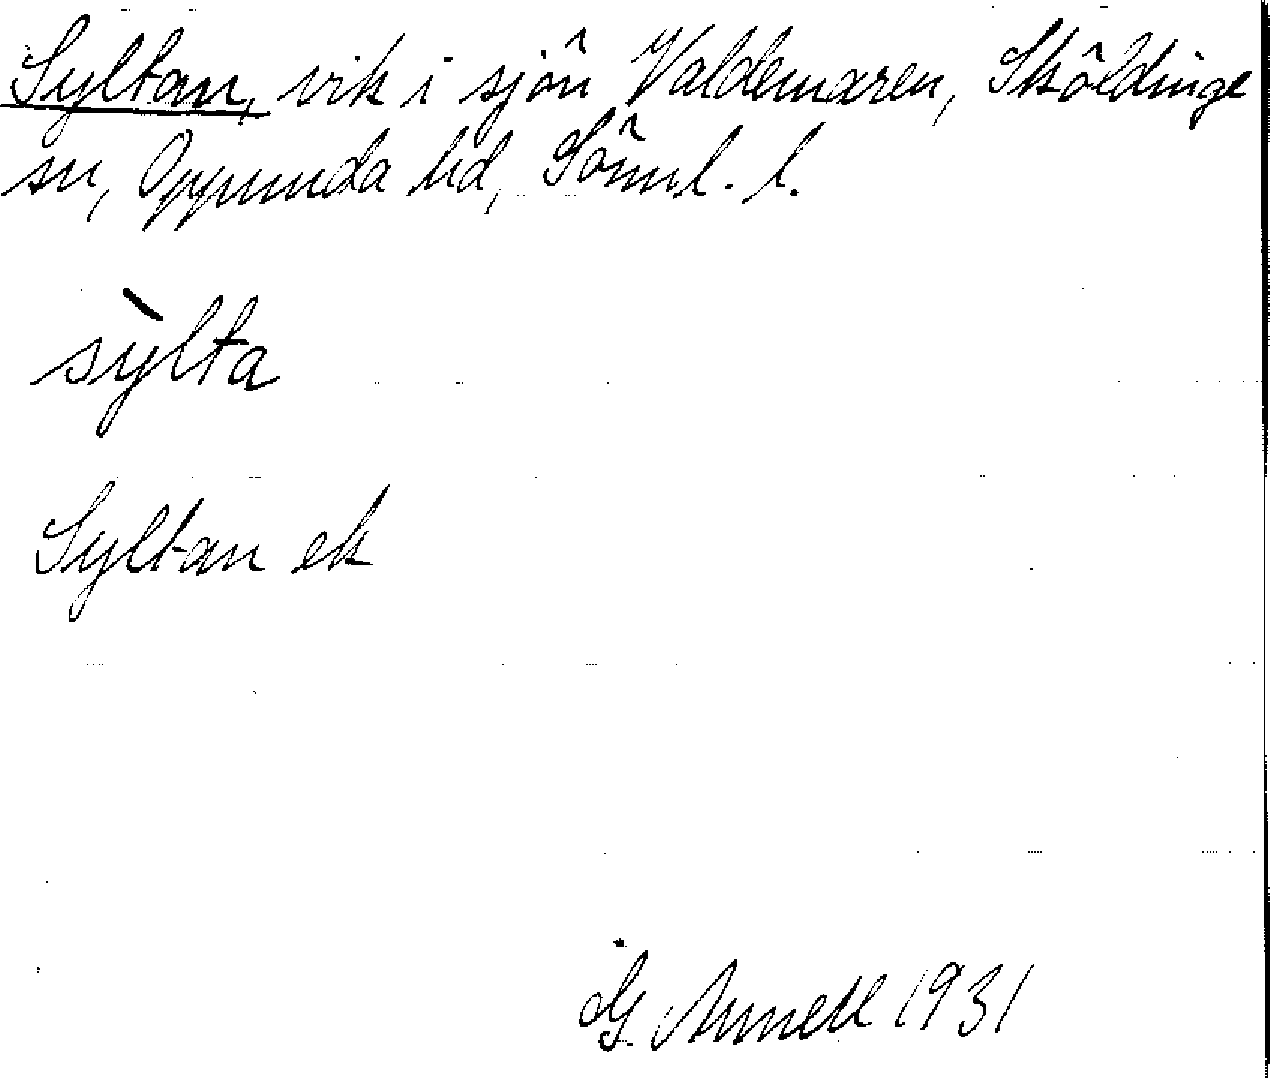 Syltan, vik i sjön Valdemaren, Sköldinge
sn, Oppunda hd, Sörml. l.
sỳlta
Syltan ek
G. Annell 1931